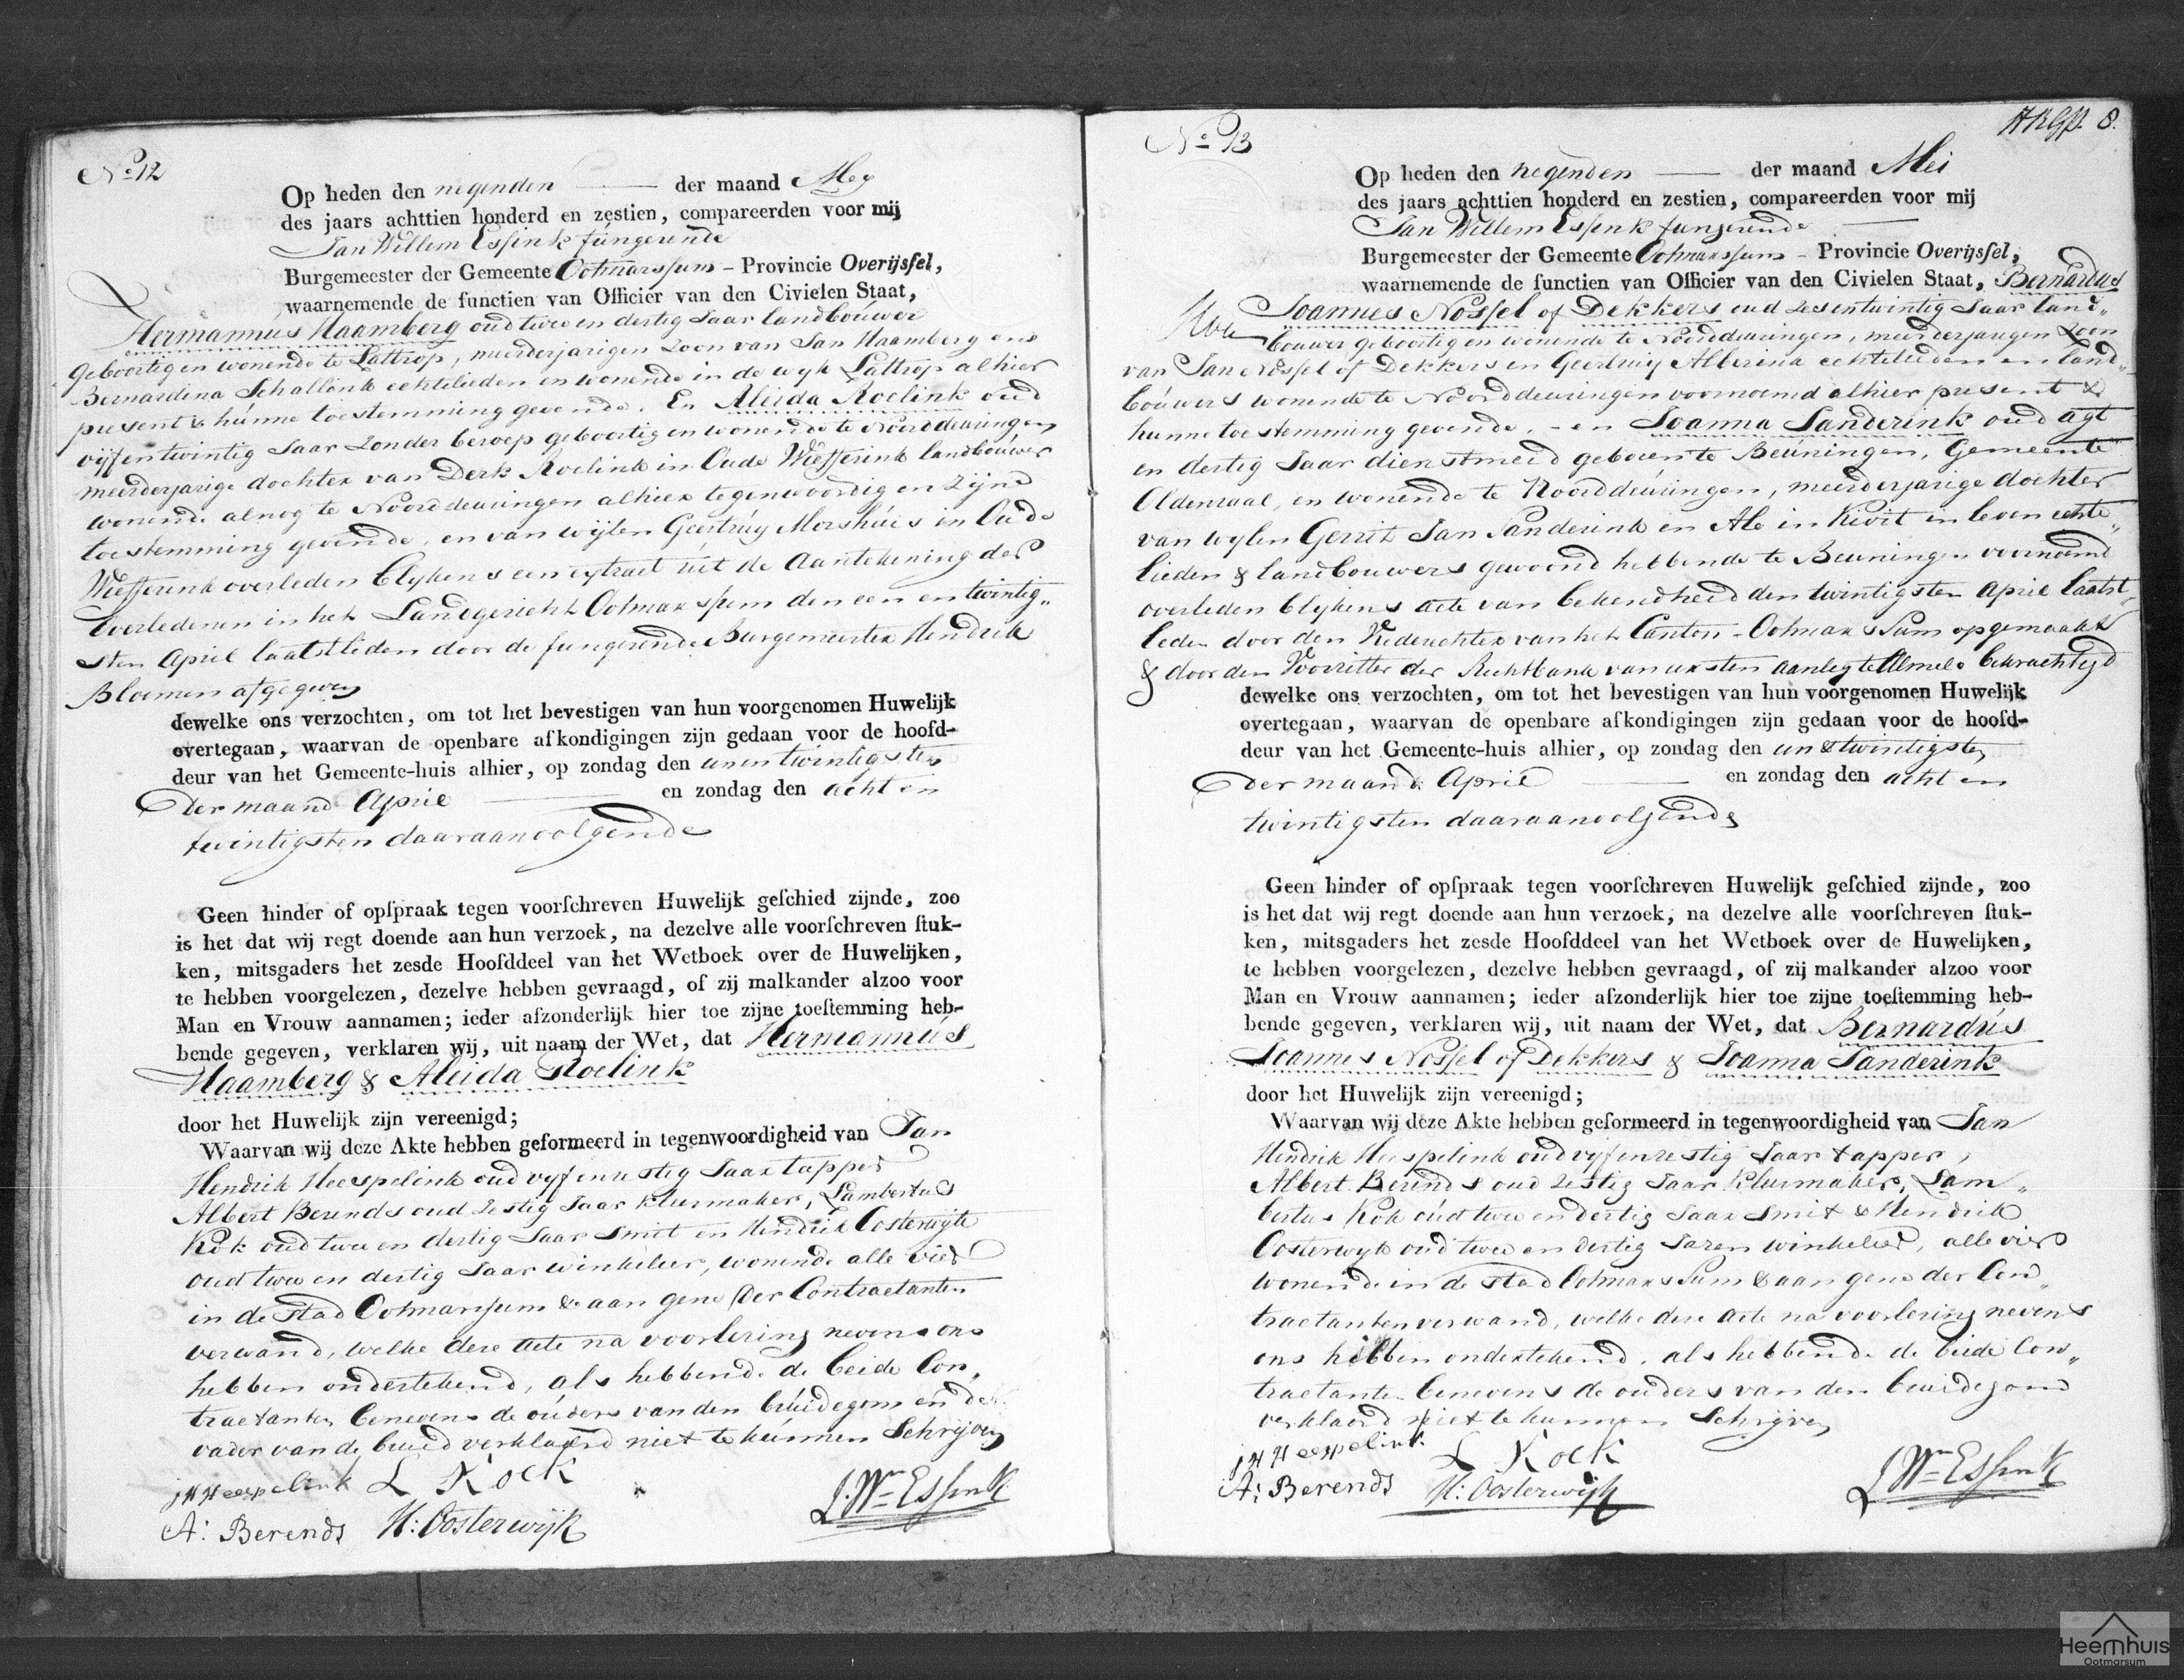 No 12
Op heden den negenden der maand Mey
des jaars achttien honderd en zestien, compareerden voor mij
Jan Willem Essink fungerende
Burgemeester der Gemeente Ootmarssum - Provincie Overijsſel,
waarnemende de functien van Officier van den Civielen Staat,
Hermannus Haamberg oud twee en dertig Jaar landbouwer
geboortig en wonende te Lattrop, meerderjarigen Zoon van Jan Haamberg en
Bernardina Schallink echtelieden en wonende in de wyk Lattrop alhier
present & hunne toestemming gevende. En Aleida Roelink oud
vijf en twintig Jaar zonder beroep geboortig en wonende te Noorddeuringen
meerderjarige dochter van Derk Roelink in Oude Wiefferink landbouwer
wonende alnog te Noorddeuringen alhier tegenwoordig en zijne
toestemming gevende, en van wijlen Geertruy Morshuis in Oude
Wiefferink overleden blykens een extract uit de Aantekening der
Overledenen in het Landgericht Ootmarssum den een en twintig„
sten April laatstleden door de fungerende Burgemeester Hendrik
Bloemen afgegeven
dewelke ons verzochten, om tot het bevestigen van hun voorgenomen Huwelijk
overtegaan, waarvan de openbare afkondigingen zijn gedaan voor de hoofd-
deur van het Gemeente-huis alhier, op zondag den een en twintigsten
der maand April en zondag den acht en
twintigsten daaraanvolgende
Geen hinder of opſpraak tegen voorſchreven Huwelijk geſchied zijnde, zoo
is het dat wij regt doende aan hun verzoek, na dezelve alle voorſchreven ſtuk-
ken, mitsgaders het zesde Hoofddeel van het Wetboek over de Huwelijken,
te hebben voorgelezen, dezelve hebben gevraagd, of zij malkander alzoo voor
Man en Vrouw aannamen; ieder afzonderlijk hier toe zijne toeſtemming heb-
bende gegeven, verklaren wij, uit naam der Wet, dat Hermannus
Haamberg & Aleida Roelink
door het Huwelijk zijn vereenigd;
Waarvan wij deze Akte hebben geformeerd in tegenwoordigheid van Jan
Hendrik Heespelink oud vyf en zestig Jaar tapper
Albert Berends oud zestig Jaar kluinmaker, Lambertus
Kok oud twee en dertig Jaar Smit en Hendrik Oosterwyk
oud twee en dertig Jaar winkelier, wonende alle vier
in de stad Ootmarssum & aan gene der Contractanten
verwand, welke deze acte na voorlezing nevens ons
hebben ondertekend, als hebbende de beide Con„
tractanten benevens de ouders van den bruidegom en de
vader van de bruid verklaard niet te kunnen Schryven
JH Heespelink L Kock
A: Berends H: Oosterwijk
J. Wm Essink
No 13
8.
Op heden den negenden der maand Mei
des jaars achttien honderd en zestien, compareerden voor mij
Jan Willem Essink fungerende
Burgemeester der Gemeente Ootmarssum - Provincie Overijsſel,
waarnemende de functien van Officier van den Civielen Staat, Bernardus
Joannes Nossel of Dekkers oud zesentwintig Jaar land„
bouwer geboortig en wonende te Noorddeuringen, meerderjarigen Zoon
van Jan Nossel of Dekkers en Geertruy Alberink echtelieden en land„
bouwers wonende te Noorddeuringen voornoemd alhier present &
hunne toestemming gevende. - en Joanna Sanderink oud agt
en dertig Jaar dienstmeid geboren te Beuningen, Gemeente
Oldenzaal, en wonende te Noorddeuringen, meerderjarige dochter
van wylen Gerrit Jan Sanderink en Ale in Kivit in leven echte„
lieden & landbouwers gewoond hebbende te Beuningen voornoemd
overleden blykens acte van bekendheid den twintigsten April laatst„
leden door den Vrederechter van het Canton - Ootmarssum opgemaakt
& door den Voorzitter der Rechtbank van eersten aanleg te Almelo bekrachtigd
dewelke ons verzochten, om tot het bevestigen van hun voorgenomen Huwelijk
overtegaan, waarvan de openbare afkondigingen zijn gedaan voor de hoofd-
deur van het Gemeente-huis alhier, op zondag den een & twintigsten
der maand April en zondag den acht en
twintigsten daaraanvolgende
Geen hinder of opſpraak tegen voorſchreven Huwelijk geſchied zijnde, zoo
is het dat wij regt doende aan hun verzoek, na dezelve alle voorſchreven ſtuk-
ken, mitsgaders het zesde Hoofddeel van het Wetboek over de Huwelijken,
te hebben voorgelezen, dezelve hebben gevraagd, of zij malkander alzoo voor
Man en Vrouw aannamen; ieder afzonderlijk hier toe zijne toeſtemming heb-
bende gegeven, verklaren wij, uit naam der Wet, dat Bernardus
Joannes Nossel of Dekkers & Joanna Sanderink
door het Huwelijk zijn vereenigd;
Waarvan wij deze Akte hebben geformeerd in tegenwoordigheid van Jan
Hendrik Heespelink oud vyf en zestig Jaar tapper,
Albert Berends oud zestig Jaar kluinmaker, Lam„
bertus Kok oud twee en dertig Jaar Smit & Hendrik
Oosterwyk oud twee en dertig Jaren winkelier, alle vier
wonende in de stad Ootmarssum & aan gene der Con„
tractanten verwand, welke deze acte na voorlezing nevens
ons hebben ondertekend, als hebbende de beide Con„
tractanten benevens de ouders van den bruidegom
verklaard niet te kunnen Schryven
JH Heespelink L Kock
A: Berends H: Oosterwijk
J Wm Essink
Heemhuis
Ootmarsum